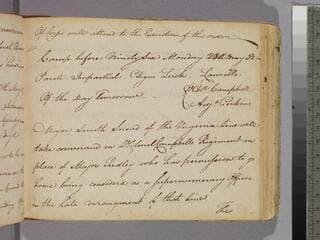 Of Corps will attend to the Execution of this order
Camp before Ninety Six Monday 28th May 81
Parole Impartial Csigns Leish. Laurells
Lt Col Campbell
Of the Day Tomorrow Adjt Perkins
Major Smith Snead of the Virginia Line will
take command in Lt Colonel Campbells Regiment in
place of Major Ridley who has permission to go
home being considered as a Supernumerary Officer
in the late arrangment of that line.
The